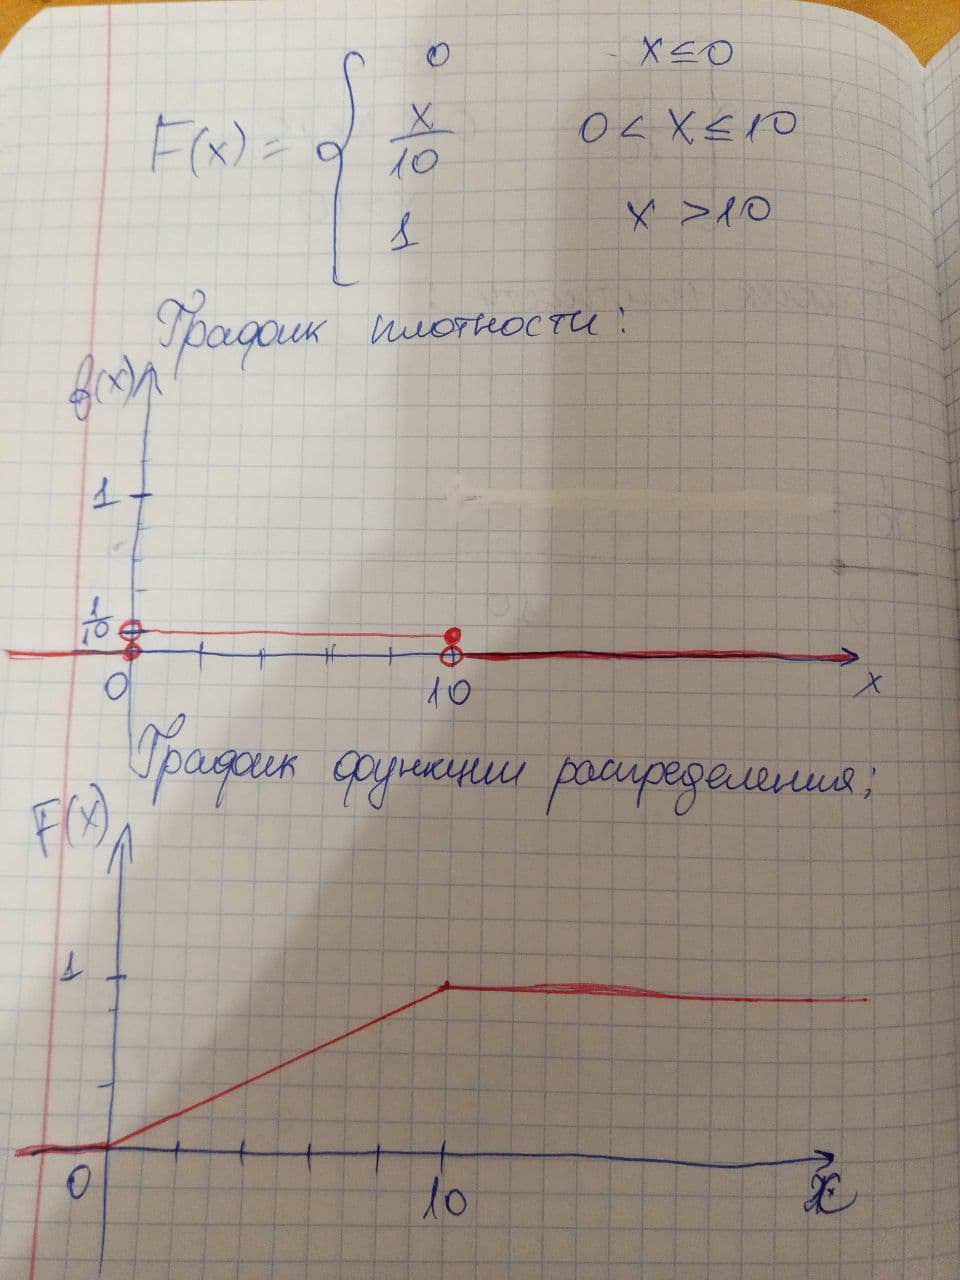 0 x ≤ 0
F(x) = { x/10 0 < x ≤ 10
1 x > 10
График плотности:
f(x)
1
1/10
0 10 x
График функции распределения;
F(x)
1
0 10 x